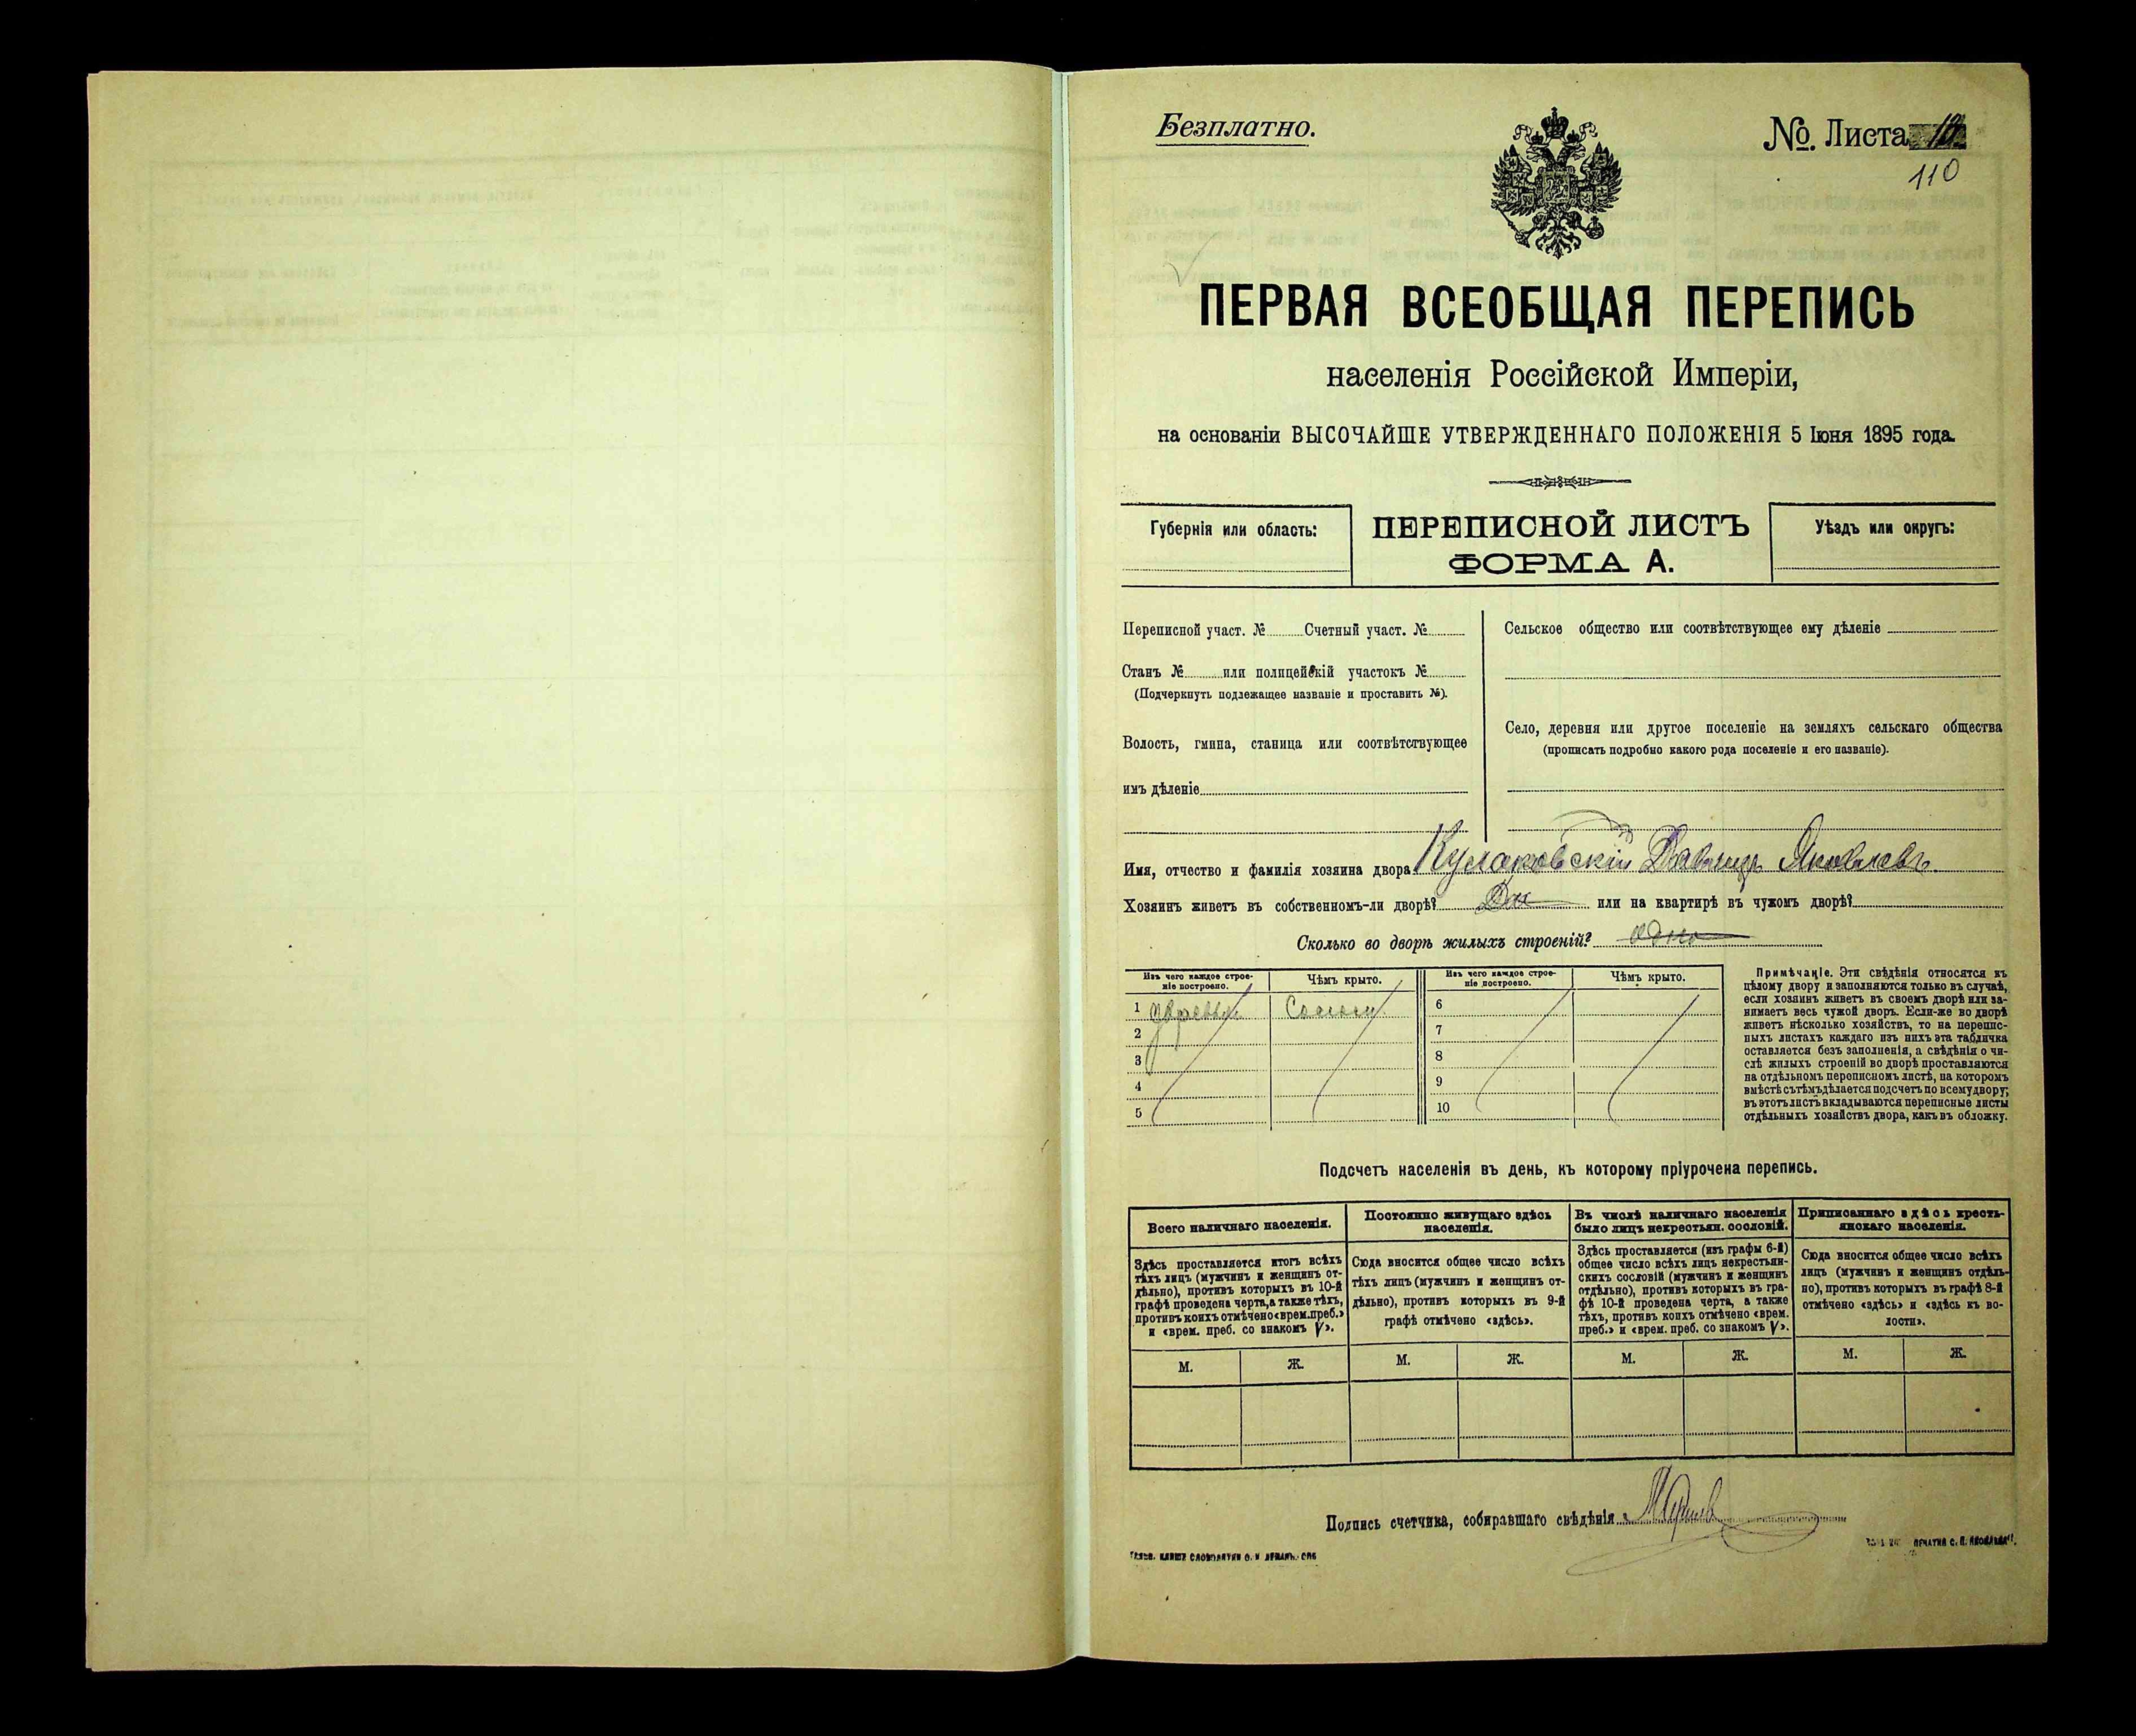 Безплатно.
№. Листа
110
ПЕРВАЯ ВСЕОБЩАЯ ПЕРЕПИСЬ
населенія Россійской Имперіи,
на основаніи ВЫСОЧАЙШЕ УТВЕРЖДЕННАГО ПОЛОЖЕНІЯ 5 Іюня 1895 года.
Губернія или область:
ПЕРЕПИСНОЙ ЛИСТЪ
ФОРМА А.
Уѣздъ или округъ:
Переписной участ. № Счетный участ. №
Станъ № или полицейскій участокъ №
(Подчеркнуть подлежащее названіе и проставить №).
Волость, гмина, станица или соотвѣтствующее
имъ дѣленіе
Сельское общество или соотвѣтствующее ему дѣленіе
Село, деревня или другое поселеніе на земляхъ сельскаго общества
(прописать подробно какого рода поселеніе и его названіе).
Имя, отчество и фамилія хозяина двора Кулаковскій Давыдъ Яковлевъ
Хозяинъ живетъ въ собственномъ-ли дворѣ? Да или на квартирѣ въ чужомъ дворѣ?
Сколько во дворѣ жилыхъ строеній? одно
Изъ чего каждое строе-
ніе построено.
Чѣмъ крыто.
Изъ чего каждое строе-
ніе построено.
Чѣмъ крыто.
1 Соломы 6
2 7
3 8
4 9
5 10
Примѣчаніе. Эти свѣдѣнія относятся къ
цѣлому двору и заполняются только въ случаѣ,
если хозяинъ живетъ въ своемъ дворѣ или за-
нимаетъ весь чужой дворъ. Если-же во дворѣ
живетъ нѣсколько хозяйствъ, то на перепис-
ныхъ листахъ каждаго изъ нихъ эта табличка
оставляется безъ заполненія, а свѣдѣнія о чи-
слѣ жилыхъ строеній во дворѣ проставляются
на отдѣльномъ переписномъ листѣ, на которомъ
вмѣстѣ съ тѣмъ дѣлается подсчетъ по всему двору;
въ этотъ листъ вкладываются переписные листы
отдѣльныхъ хозяйствъ двора, какъ въ обложку.
Подсчетъ населенія въ день, къ которому пріурочена перепись.
Всего наличнаго населенія.
Здѣсь проставляется итогъ всѣхъ
тѣхъ лицъ (мужчинъ и женщинъ от-
дѣльно), противъ которыхъ въ 10-й
графѣ проведена черта, а также тѣхъ,
противъ коихъ отмѣчено «врем. преб.»
и «врем. преб. со знакомъ V».
Постоянно живущаго здѣсь
населенія.
Сюда вносится общее число всѣхъ
тѣхъ лицъ (мужчинъ и женщинъ от-
дѣльно), противъ которыхъ въ 9-й
графѣ отмѣчено «здѣсь».
Въ числѣ наличнаго населенія
было лицъ некрестьян. сословій.
Здѣсь проставляется (изъ графы 6-й)
общее число всѣхъ лицъ некрестьян-
скихъ сословій (мужчинъ и женщинъ
отдѣльно), противъ которыхъ въ гра-
фѣ 10-й проведена черта, а также
тѣхъ, противъ коихъ отмѣчено «врем.
преб.» и «врем. преб. со знакомъ V».
Приписаннаго здѣсь кресть-
янскаго населенія.
Сюда вносится общее число всѣхъ
лицъ (мужчинъ и женщинъ отдѣль-
но), противъ которыхъ въ графѣ 8-й
отмѣчено «здѣсь» и «здѣсь къ во-
лости».
М. Ж. М. Ж. М. Ж. М. Ж.
Подпись счетчика, собиравшаго свѣдѣнія